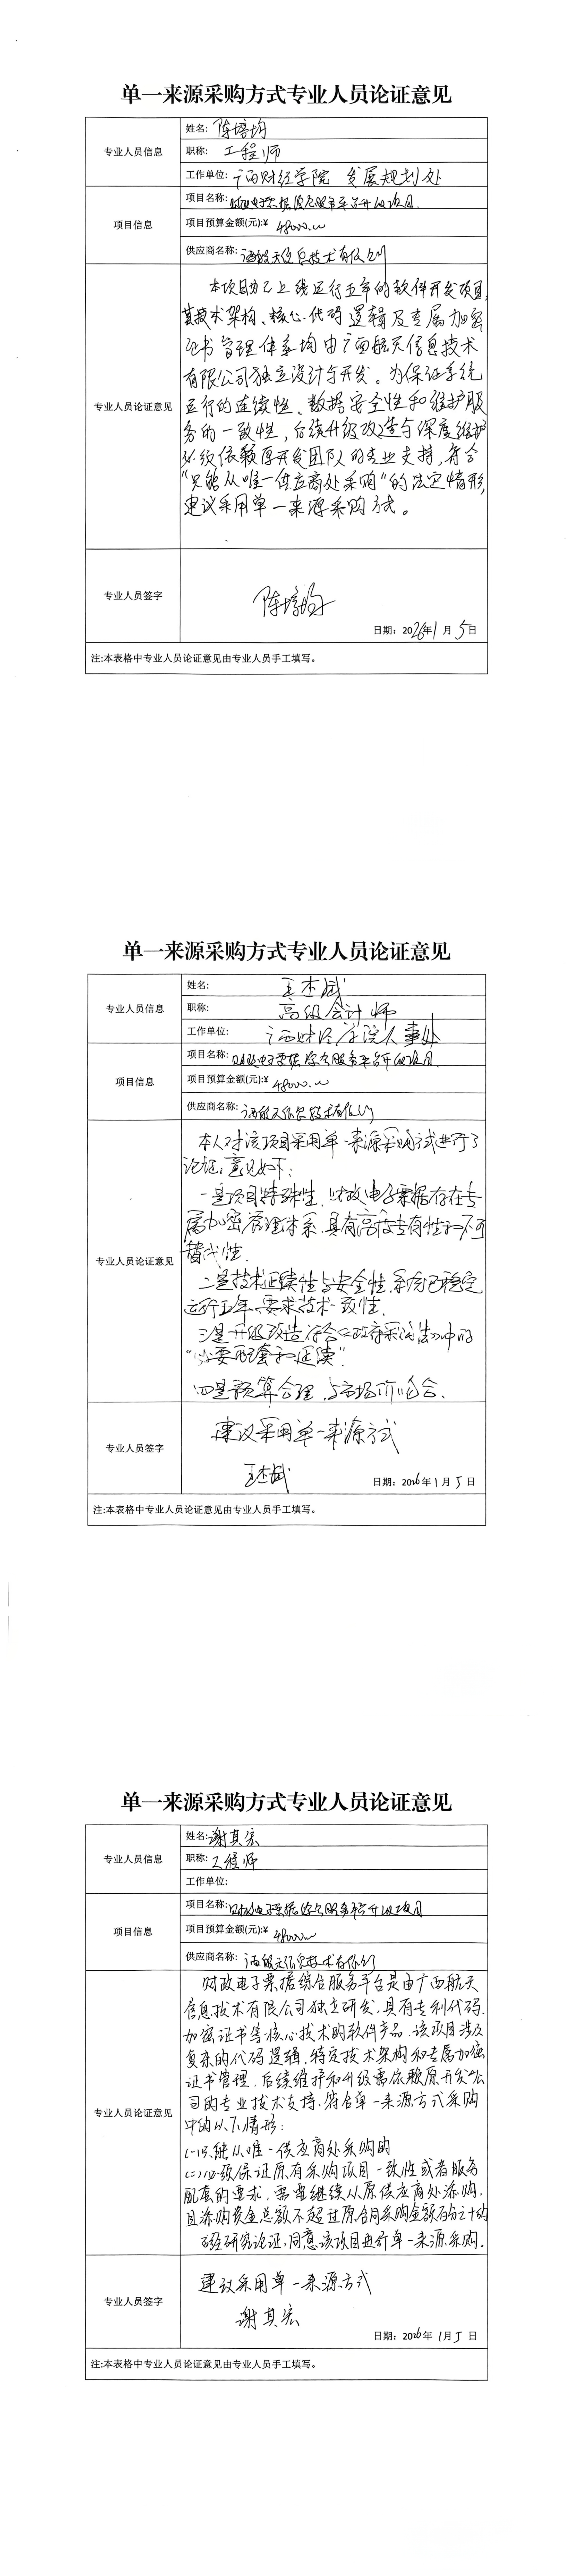 单一来源采购方式专业人员论证意见
专业人员信息
姓名: 陈培均
职称: 工程师
工作单位: 广西财经学院 发展规划处
项目信息
项目名称: 财政电子票据综合服务平台升级项目
项目预算金额(元):¥ 48000.00
供应商名称: 广西航天信息技术有限公司
专业人员论证意见
本项目为已上线运行五年的软件开发项目,
其技术架构、核心代码逻辑及专属加密
证书管理体系均由广西航天信息技术
有限公司独立设计与开发。为保证系统
运行的连续性、数据安全性和维护服
务的一致性,后续升级改造与深度维护
必须依赖原开发团队的专业支持,符合
“只能从唯一供应商处采购”的法定情形,
建议采用单一来源采购方式。
专业人员签字
陈培均
日期: 2026年1月5日
注:本表格中专业人员论证意见由专业人员手工填写。
单一来源采购方式专业人员论证意见
专业人员信息
姓名: 王杰斌
职称: 高级会计师
工作单位: 广西财经学院人事处
项目信息
项目名称: 财政电子票据综合服务平台升级项目
项目预算金额(元):¥ 48000.00
供应商名称: 广西航天信息技术有限公司
专业人员论证意见
本人对该项目采用单一来源采购方式进行了
论证,意见如下:
一是项目特殊性,财政电子票据存在专
属加密管理体系,具有高度专有性和不可
替代性.
二是技术延续性与安全性,系统已稳定
运行五年,要求技术一致性.
三是升级改造符合《政府采购法》中的
“必要配套和延续”.
四是预算合理,与市场价吻合.
专业人员签字
建议采用单一来源方式
王杰斌
日期: 2026年1月5日
注:本表格中专业人员论证意见由专业人员手工填写。
单一来源采购方式专业人员论证意见
专业人员信息
姓名: 谢其宏
职称: 工程师
工作单位:
项目信息
项目名称: 财政电子票据综合服务平台升级项目
项目预算金额(元):¥ 48000.00
供应商名称: 广西航天信息技术有限公司
专业人员论证意见
财政电子票据综合服务平台是由广西航天
信息技术有限公司独立研发,具有专利代码、
加密证书等核心技术的软件产品.该项目涉及
复杂的代码逻辑、特定技术架构和专属加密
证书管理,后续维护和升级需依赖原开发公
司的专业技术支持.符合单一来源方式采购
中的以下情形:
(一)只能从唯一供应商处采购的
(二)必须保证原有采购项目一致性或者服务
配套的要求,需要继续从原供应商处添购,
且添购资金总额不超过原合同采购金额百分之十的
经研究论证,同意该项目进行单一来源采购.
专业人员签字
建议采用单一来源方式
谢其宏
日期: 2026年1月5日
注:本表格中专业人员论证意见由专业人员手工填写。